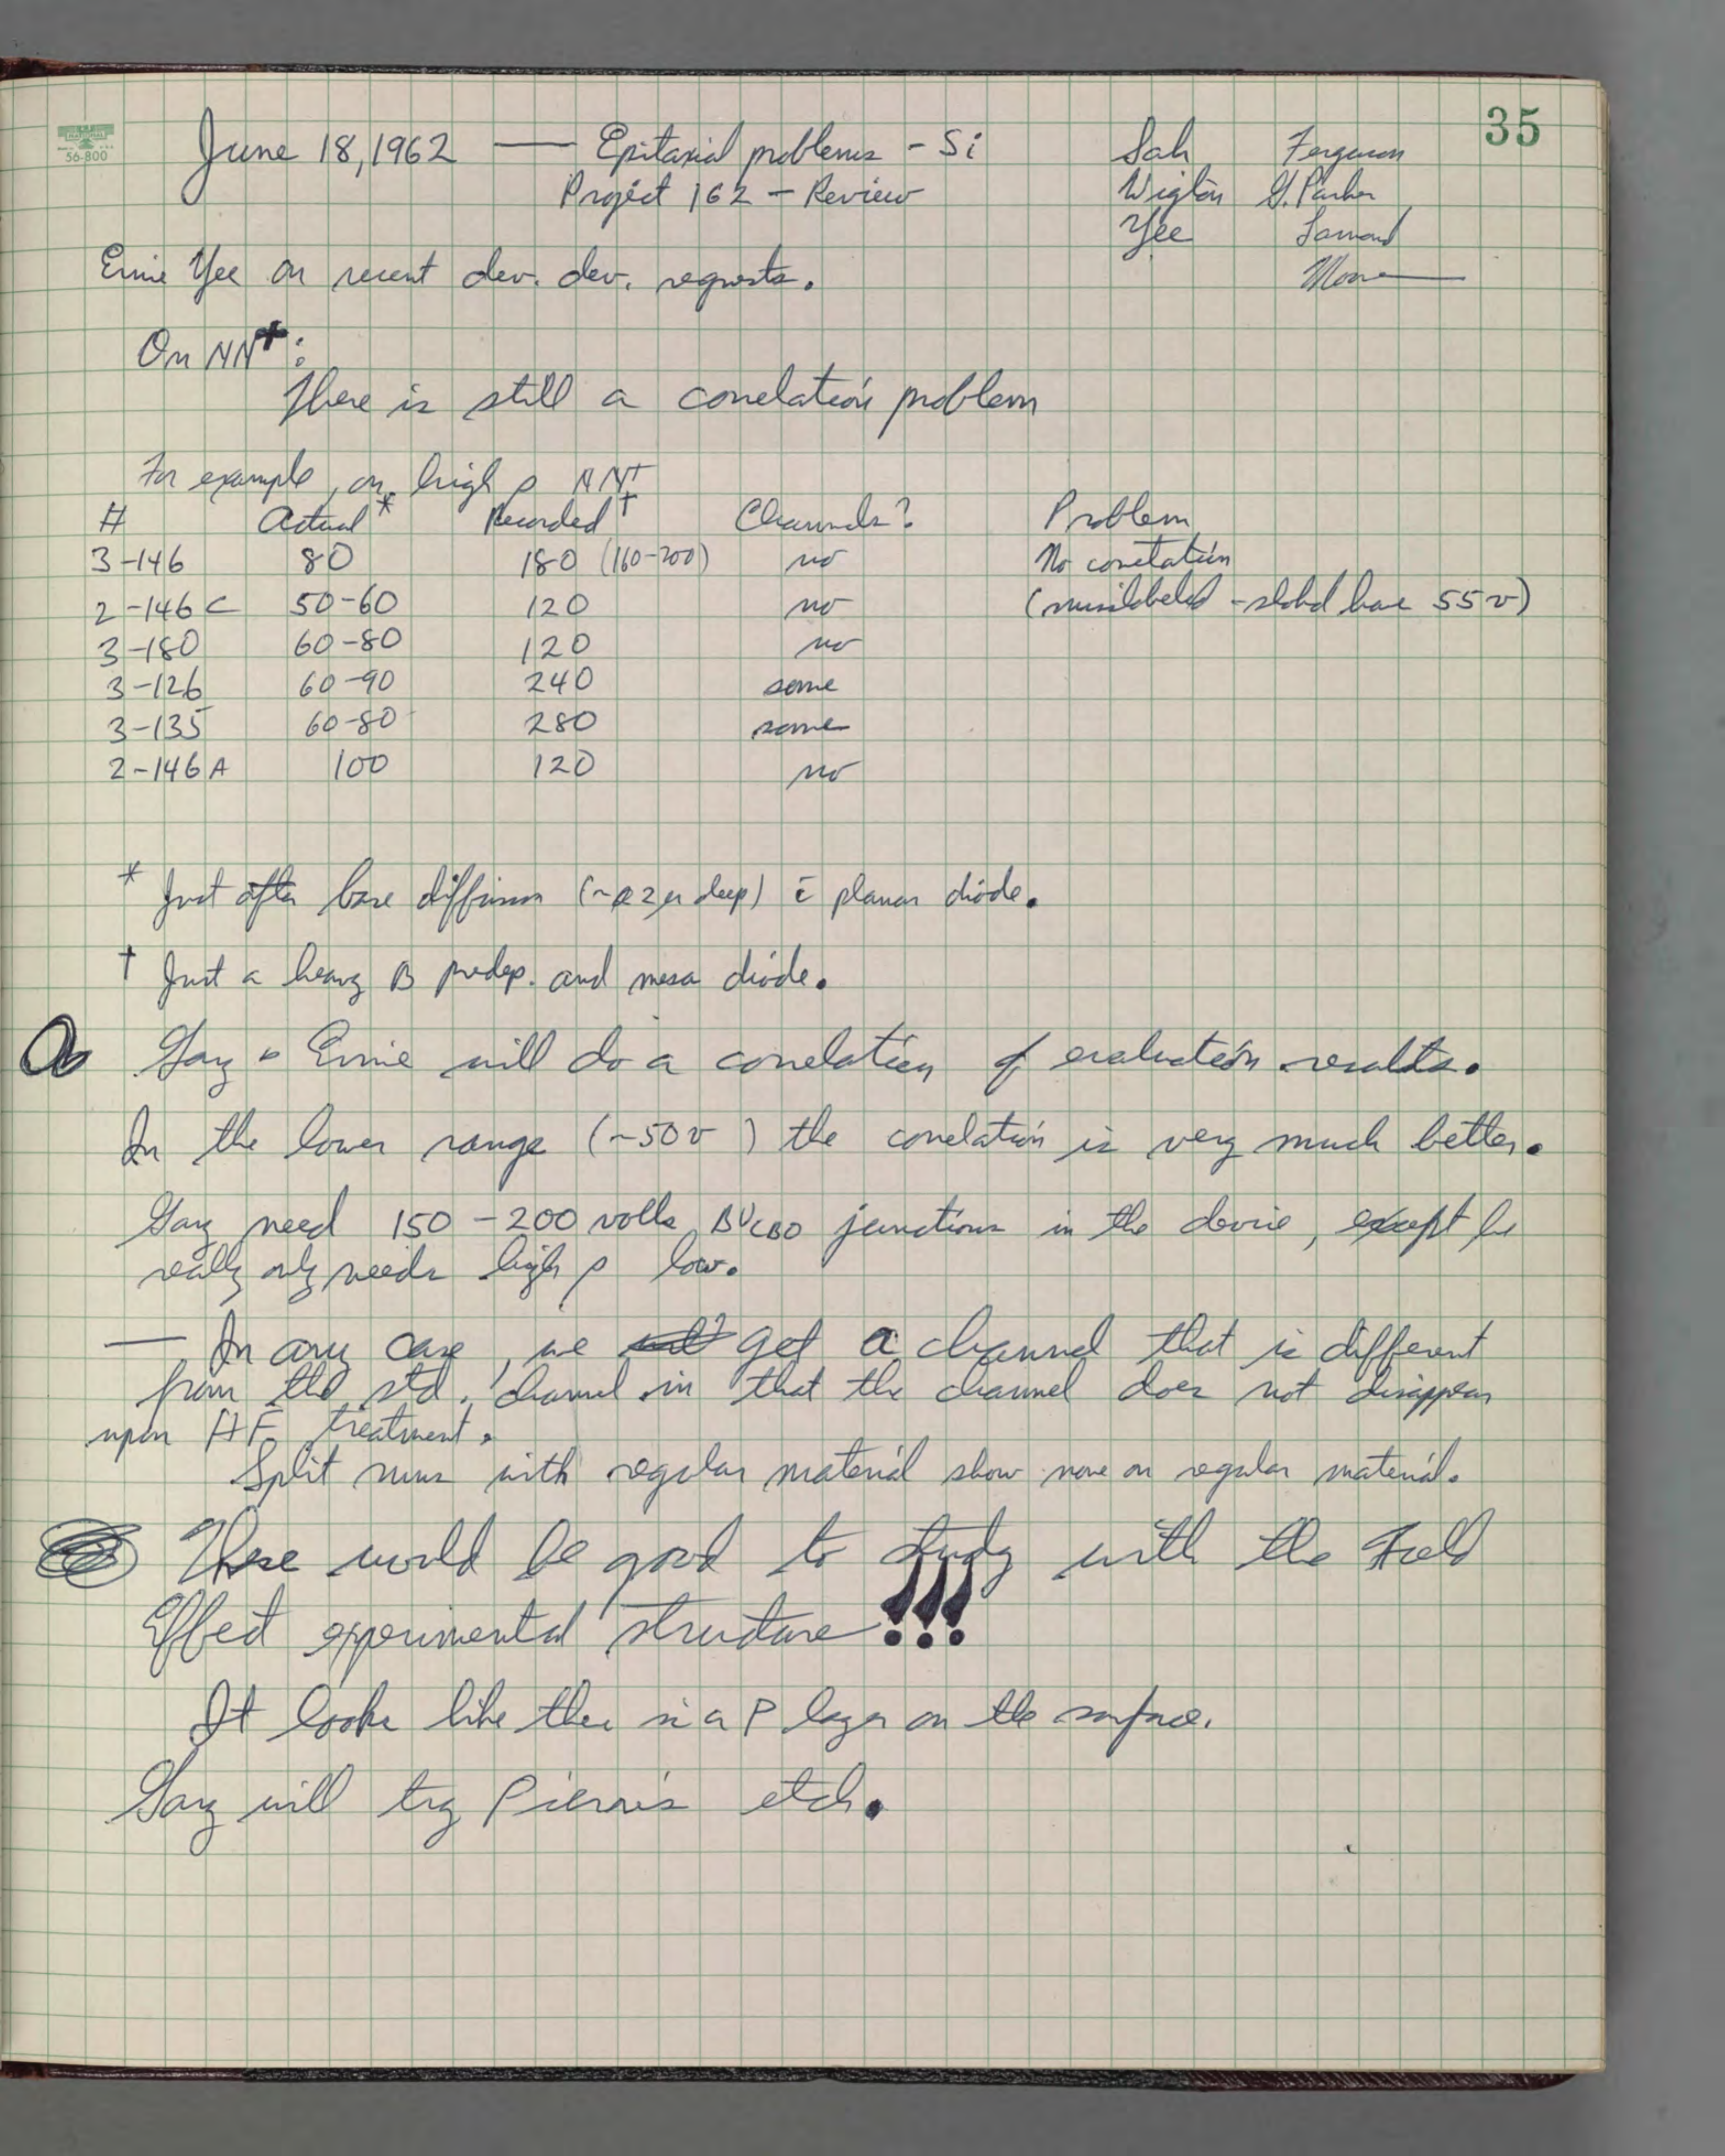 35
NATIONAL
56-800
June 18, 1962 — Epitaxial problems - Si
Project 162 - Review
Sah Ferguson
Wigton G. Parker
Yee
Moore
Ernie Yee on recent dev. dev. requests.
On NN⁺:
There is still a correlation problem
For example, on high ρ NN⁺
# Actual* Recorded† Channels? Problem
3-146 80 180 (160-200) no No correlation
2-146C 50-60 120 no (mislabeled - should have 55v)
3-180 60-80 120 no
3-126 60-90 240 some
3-135 60-80 280 some
2-146A 100 120 no
* Just after base diffusion (~ 2μ deep) c̄ planar diode.
† Just a heavy B predep. and mesa diode.
Gary & Ernie will do a correlation of evaluation results.
In the lower range (~50v) the correlation is very much better.
Gary need 150-200 volts BV_CBO junctions in the device, except he
really only needs high ρ low.
— In any case, we get a channel that is different
from the std. channel in that the channel does not disappear
upon HF treatment.
Split runs with regular material show none on regular material.
These would be good to study with the Field
Effect experimental structure!!!
It looks like there is a P layer on the surface.
Gary will try etch.